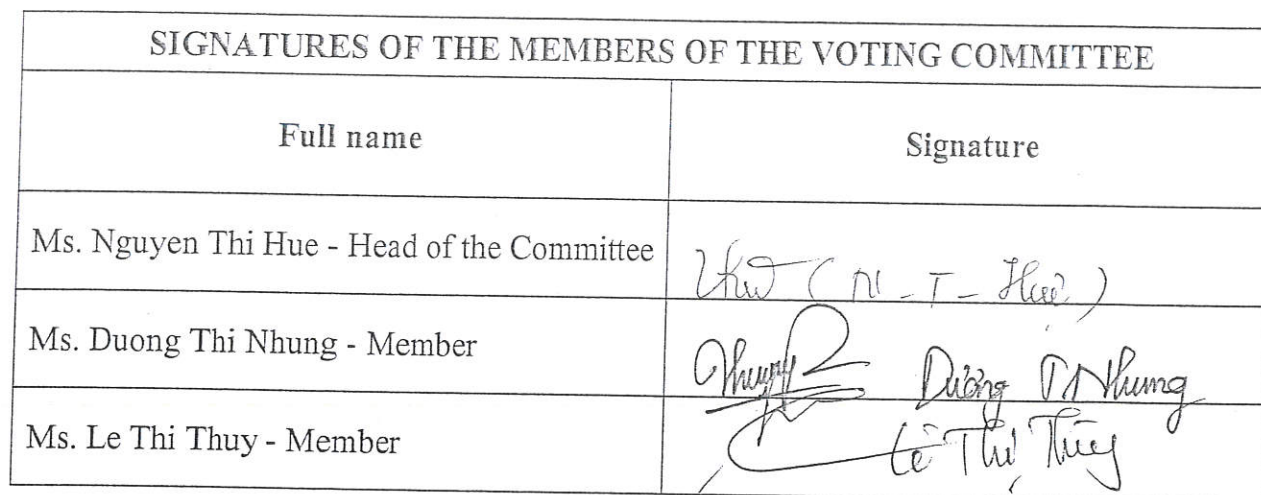 SIGNATURES OF THE MEMBERS OF THE VOTING COMMITTEE
Full name Signature
Ms. Nguyen Thi Hue - Head of the Committee
(N - T - Huệ)
Ms. Duong Thi Nhung - Member
Nhung Dương T Nhung
Ms. Le Thi Thuy - Member
Lê Thị Thủy